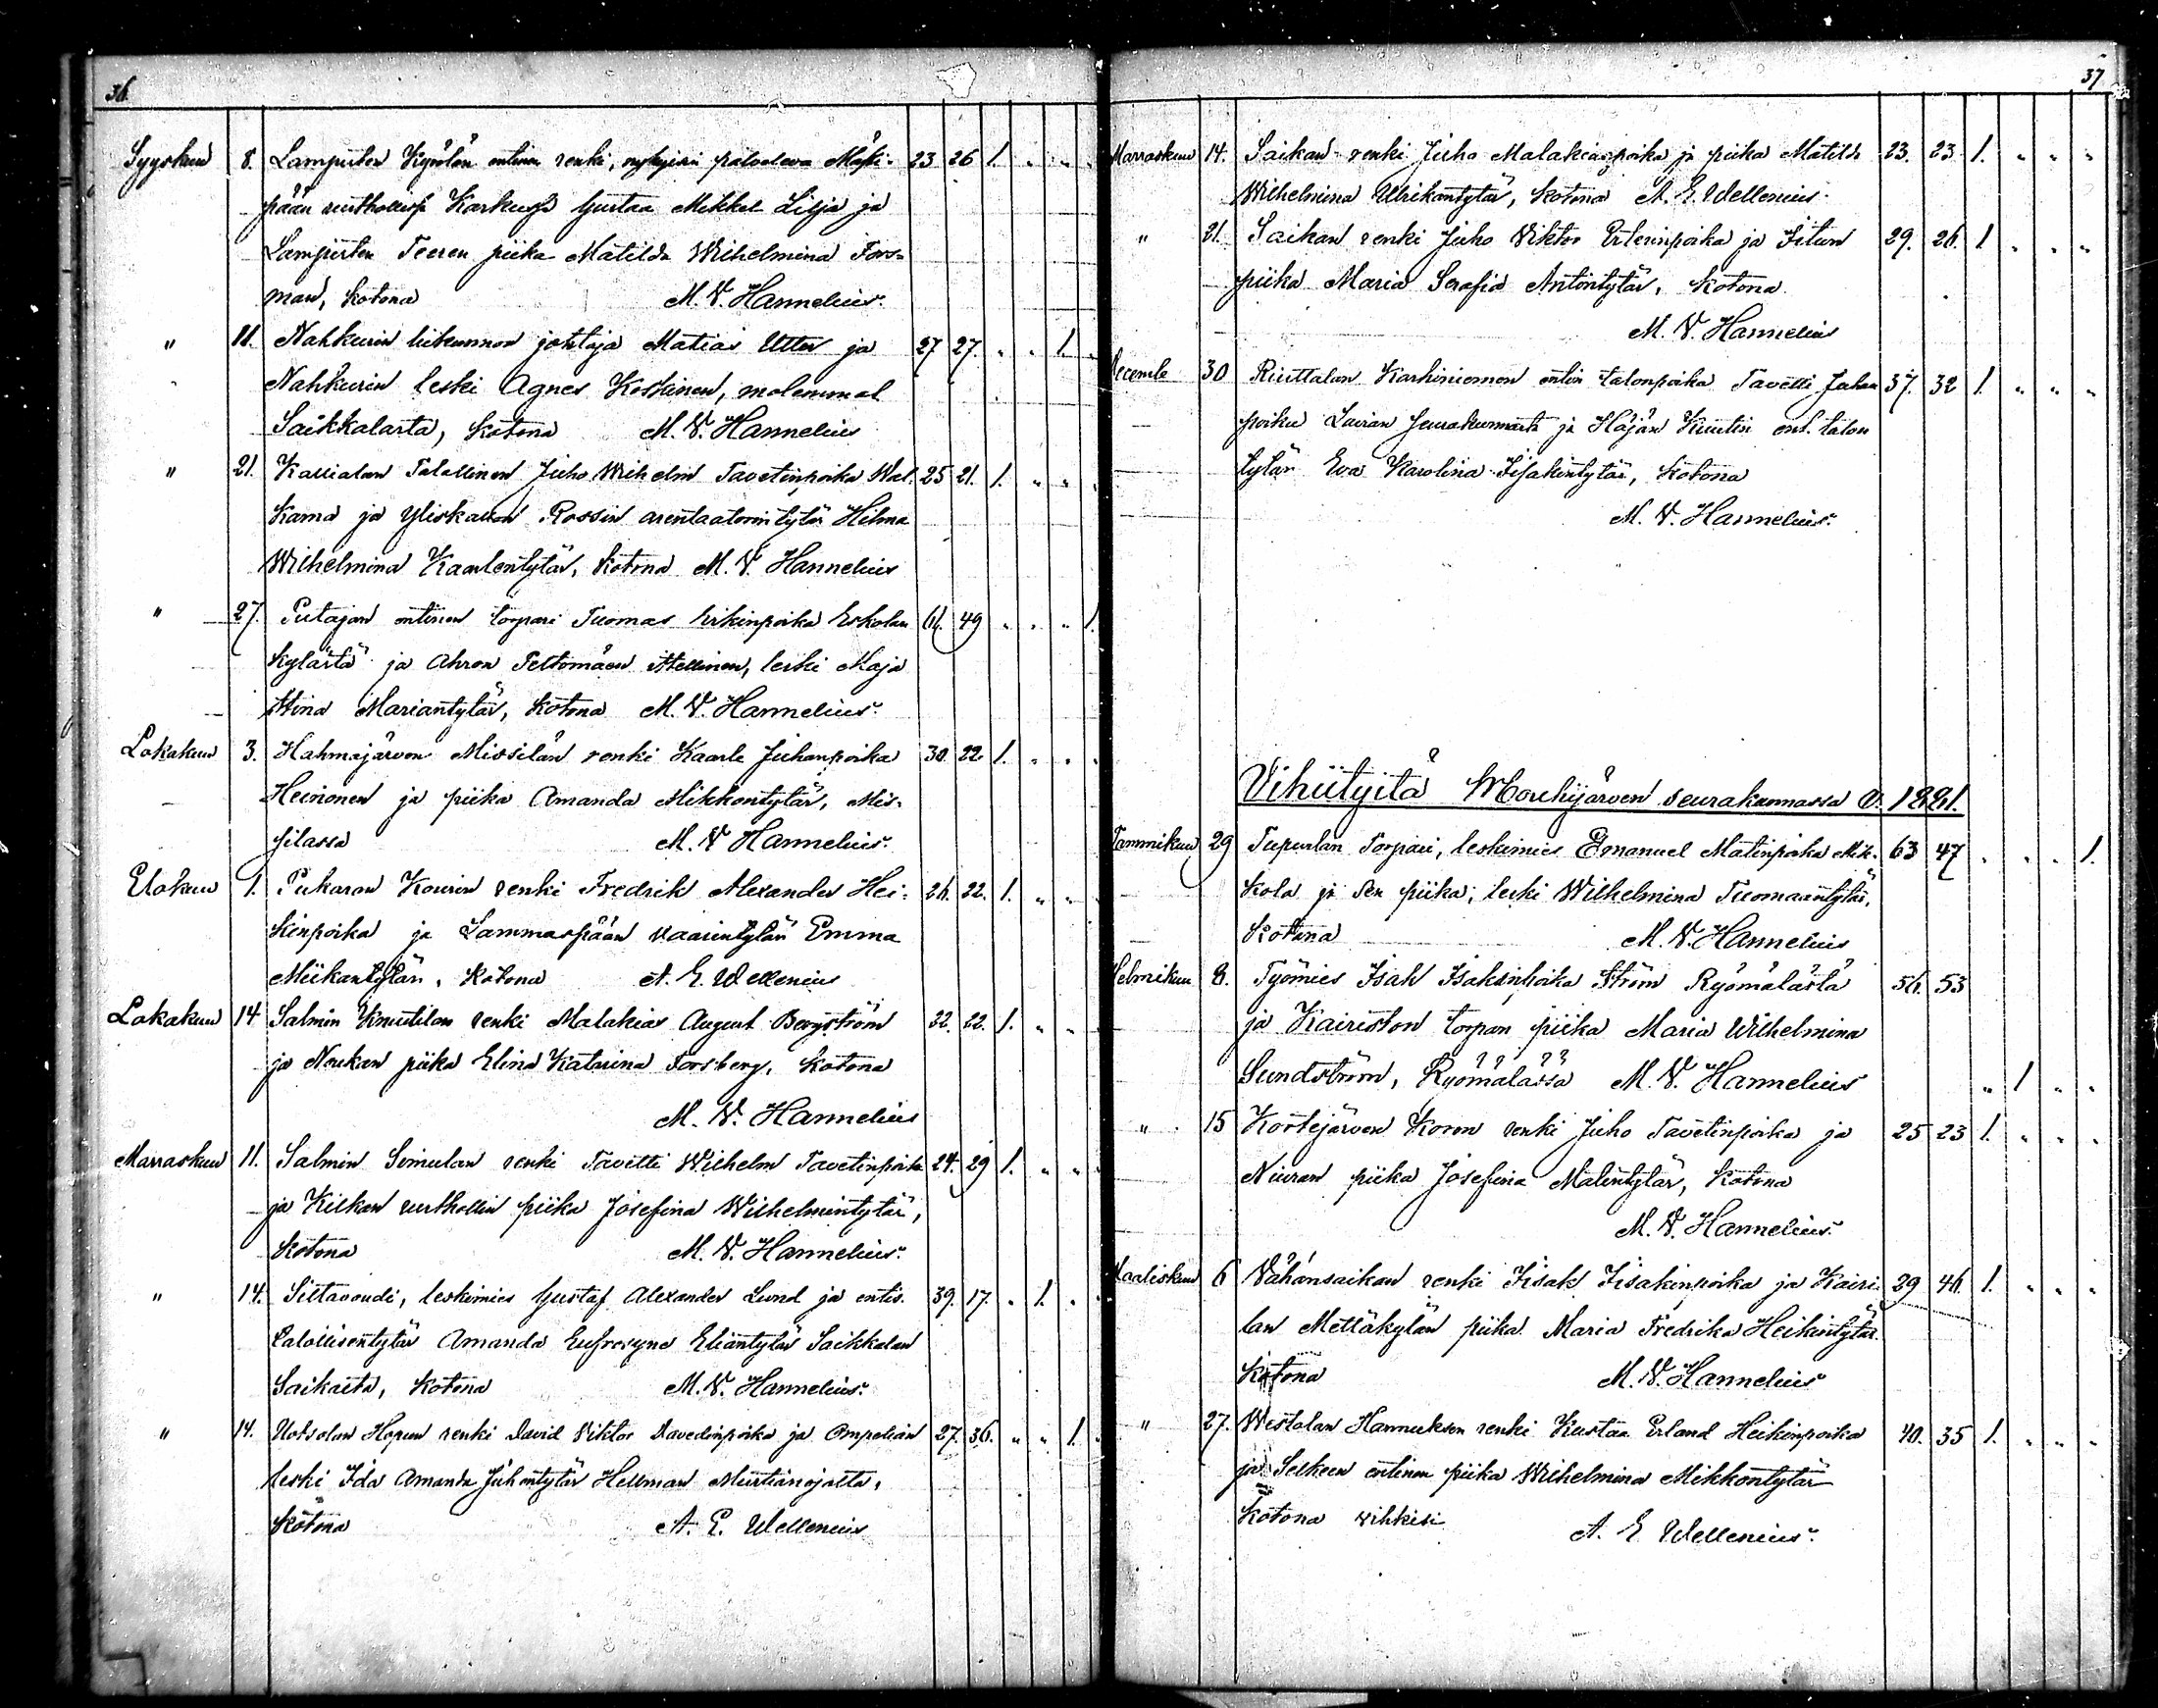 36.
Syyskuu 8. Lampisten Kyölän entinen renki, nykyisin palveleva Mäki- 23 26 1. " " "
pään rusthollissa Karkussa Gustaa Mikkel Lilja ja
Lampisten Teeren piika Matilda Wilhelmina Fors-
man, kotona M. V. Hannelius.
" 11. Nahkurin liikunnon johtaja Matias Utter ja 27 27. " " 1. "
Nahkurin leski Agnes Koskinen, molemmat
Saikkalasta, kotona M. V. Hannelius
" 21. Kallialan Talollinen Juho Wilhelm Tavetinpoika Wal- 25 21. 1. " " "
kama ja Yliskallon Rossin arentaatorintytär Hilma
Wilhelmina Kaarlentytär, kotona M. V. Hannelius
" 27. Putajan entinen torpari Tuomas Erkinpoika Eskolan 61. 49 " " " 1.
kylästä ja Ahron Peltomäen itsellinen, leski Maja
Stina Mariantytär, kotona M. V. Hannelius.
Lokakuu 3. Hahmajärven Missilän renki Kaarle Juhanpoika 30. 22. 1. " " "
Heinonen ja piika Amanda Mikkontytär, Mis-
silassa M. V. Hannelius.
Elokuu 1. Pukaran Kourin renki Fredrik Alexander Hei- 26. 22. 1. " "
kinpoika ja Lammaspään vaarintytär Emma
Miikantytär, kotona A. E. Wellenius
Lokakuu 14 Salmin Knuutilan renki Malakias August Bergström 22. 22. 1. " "
ja Noukan piika Elina Katariina Forsberg, kotona
M. V. Hannelius
Marraskuu 11. Salmin Simulan renki Tavetti Wilhelm Tavetinpoika 24. 29 1. " "
ja Kilkan rusthollin piika Josefina Wilhelmintytär,
kotona M. V. Hannelius.
" 14. Siltavouti, leskimies Gustaf Alexander Lund ja entis. 39. 17. " 1. "
talollisentytär Amanda Eufrosyne Eliäntytär Saikkalan
Saikasta, kotona M. V. Hannelius.
" 14. Uotsolan Hopun renki David Viktor Davedinpoika ja Ompelian 27. 36. " " 1. "
leski Ida Amanda Juhontytär Hellman Miistianojalta,
kotona A. E. Wellenius
37
Marraskuu 14. Saikan renki Juho Malakianpoika ja piika Matilda 23. 23. 1. " " "
Wilhelmina Ulrikantytär, kotona A. E. Wellenius.
" 21. Saikan renki Juho Viktor Erlerinpoika ja Iitun 29. 26. 1 " " "
piika Maria Serafia Antintytär, kotona.
M. V. Hannelius
Decemb. 30 Riuttalan Karhiniemen entin talonpoika Tavetti Juhan 37. 32 1. " " "
poika Lavian seurakunnasta ja Häjän Kuutin ent. talon
tytär Eva Karolina Iisakintytär, kotona
M. V. Hannelius.
Vihiityitä Mouhijärven seurakunnassa v. 1881.
Tammikuu 29 Tupurlan Torpari, leskimies Emanuel Matinpoika Mik- 63 47 " " " 1.
kola ja sen piika, leski Wilhelmina Tuomaantytär,
kotona M. V. Hannelius
Helmikuu 8. Työmies Isak Isakinpoika Ström Ryömälästä 56. 53
ja Kairiston torpan piika Maria Wilhelmina
Sundström, Ryömälässä M. V. Hannelius " 1 " "
" 15 Kortejärven Koron renki Juho Tavetinpoika ja 25 23 1. " " "
Niuran piika Josefina Matintytär, kotona
M. V. Hannelius.
Maaliskuu 6 Vähänsaikan renki Iisak Iisakinpoika ja Kairi- 29 46. 1. " " "
lan Mettäkylän piika Maria Fredrika Heikintytär
kotona M. V. Hannelius
" 27. Westolan Hannuksen renki Kustaa Erland Heikinpoika 40. 35 1. " " "
ja Selkeen entinen piika Wilhelmina Mikkontytär
kotona vihkisi A. E Wellenius.